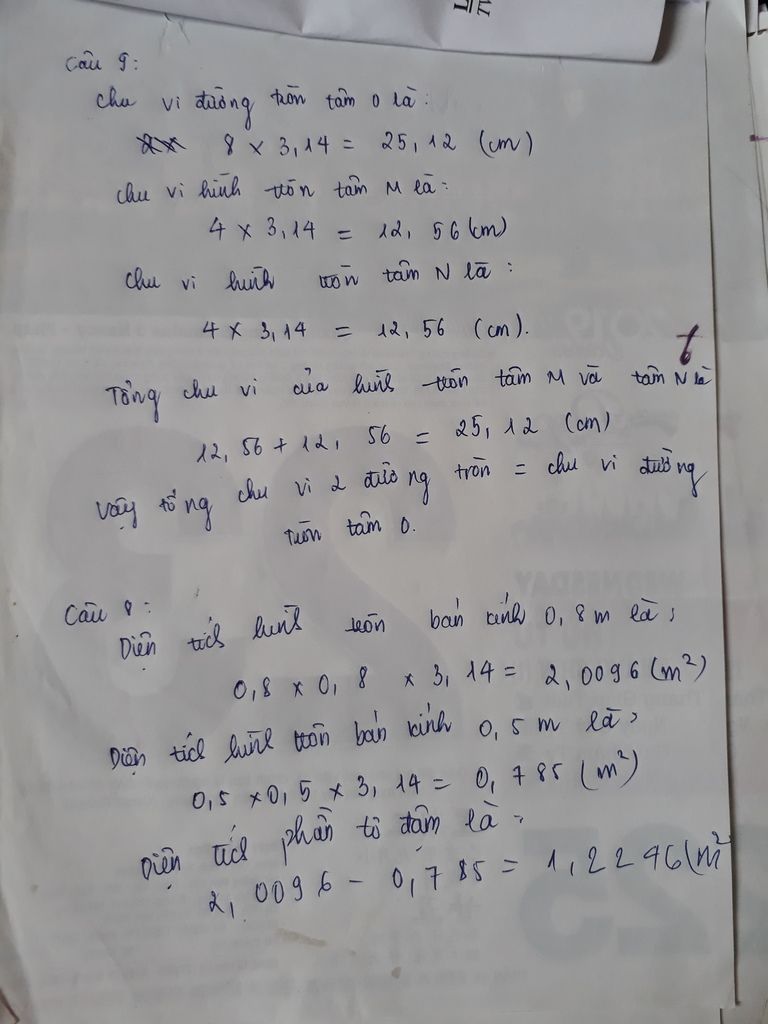 Câu 9:
Chu vi đường tròn tâm O là:
8 × 3,14 = 25,12 (cm)
Chu vi hình tròn tâm M là:
4 × 3,14 = 12,56 (cm)
Chu vi hình tròn tâm N là:
4 × 3,14 = 12,56 (cm).
t
Tổng chu vi của hình tròn tâm M và tâm N là
12,56 + 12,56 = 25,12 (cm)
Vậy tổng chu vi 2 đường tròn = chu vi đường
tròn tâm O.
Câu 8:
Diện tích hình tròn bán kính 0,8 m là:
0,8 × 0,8 × 3,14 = 2,0096 (m²)
Diện tích hình tròn bán kính 0,5 m là:
0,5 × 0,5 × 3,14 = 0,785 (m²)
Diện tích phần tô đậm là:
2,0096 - 0,785 = 1,2246 (m²